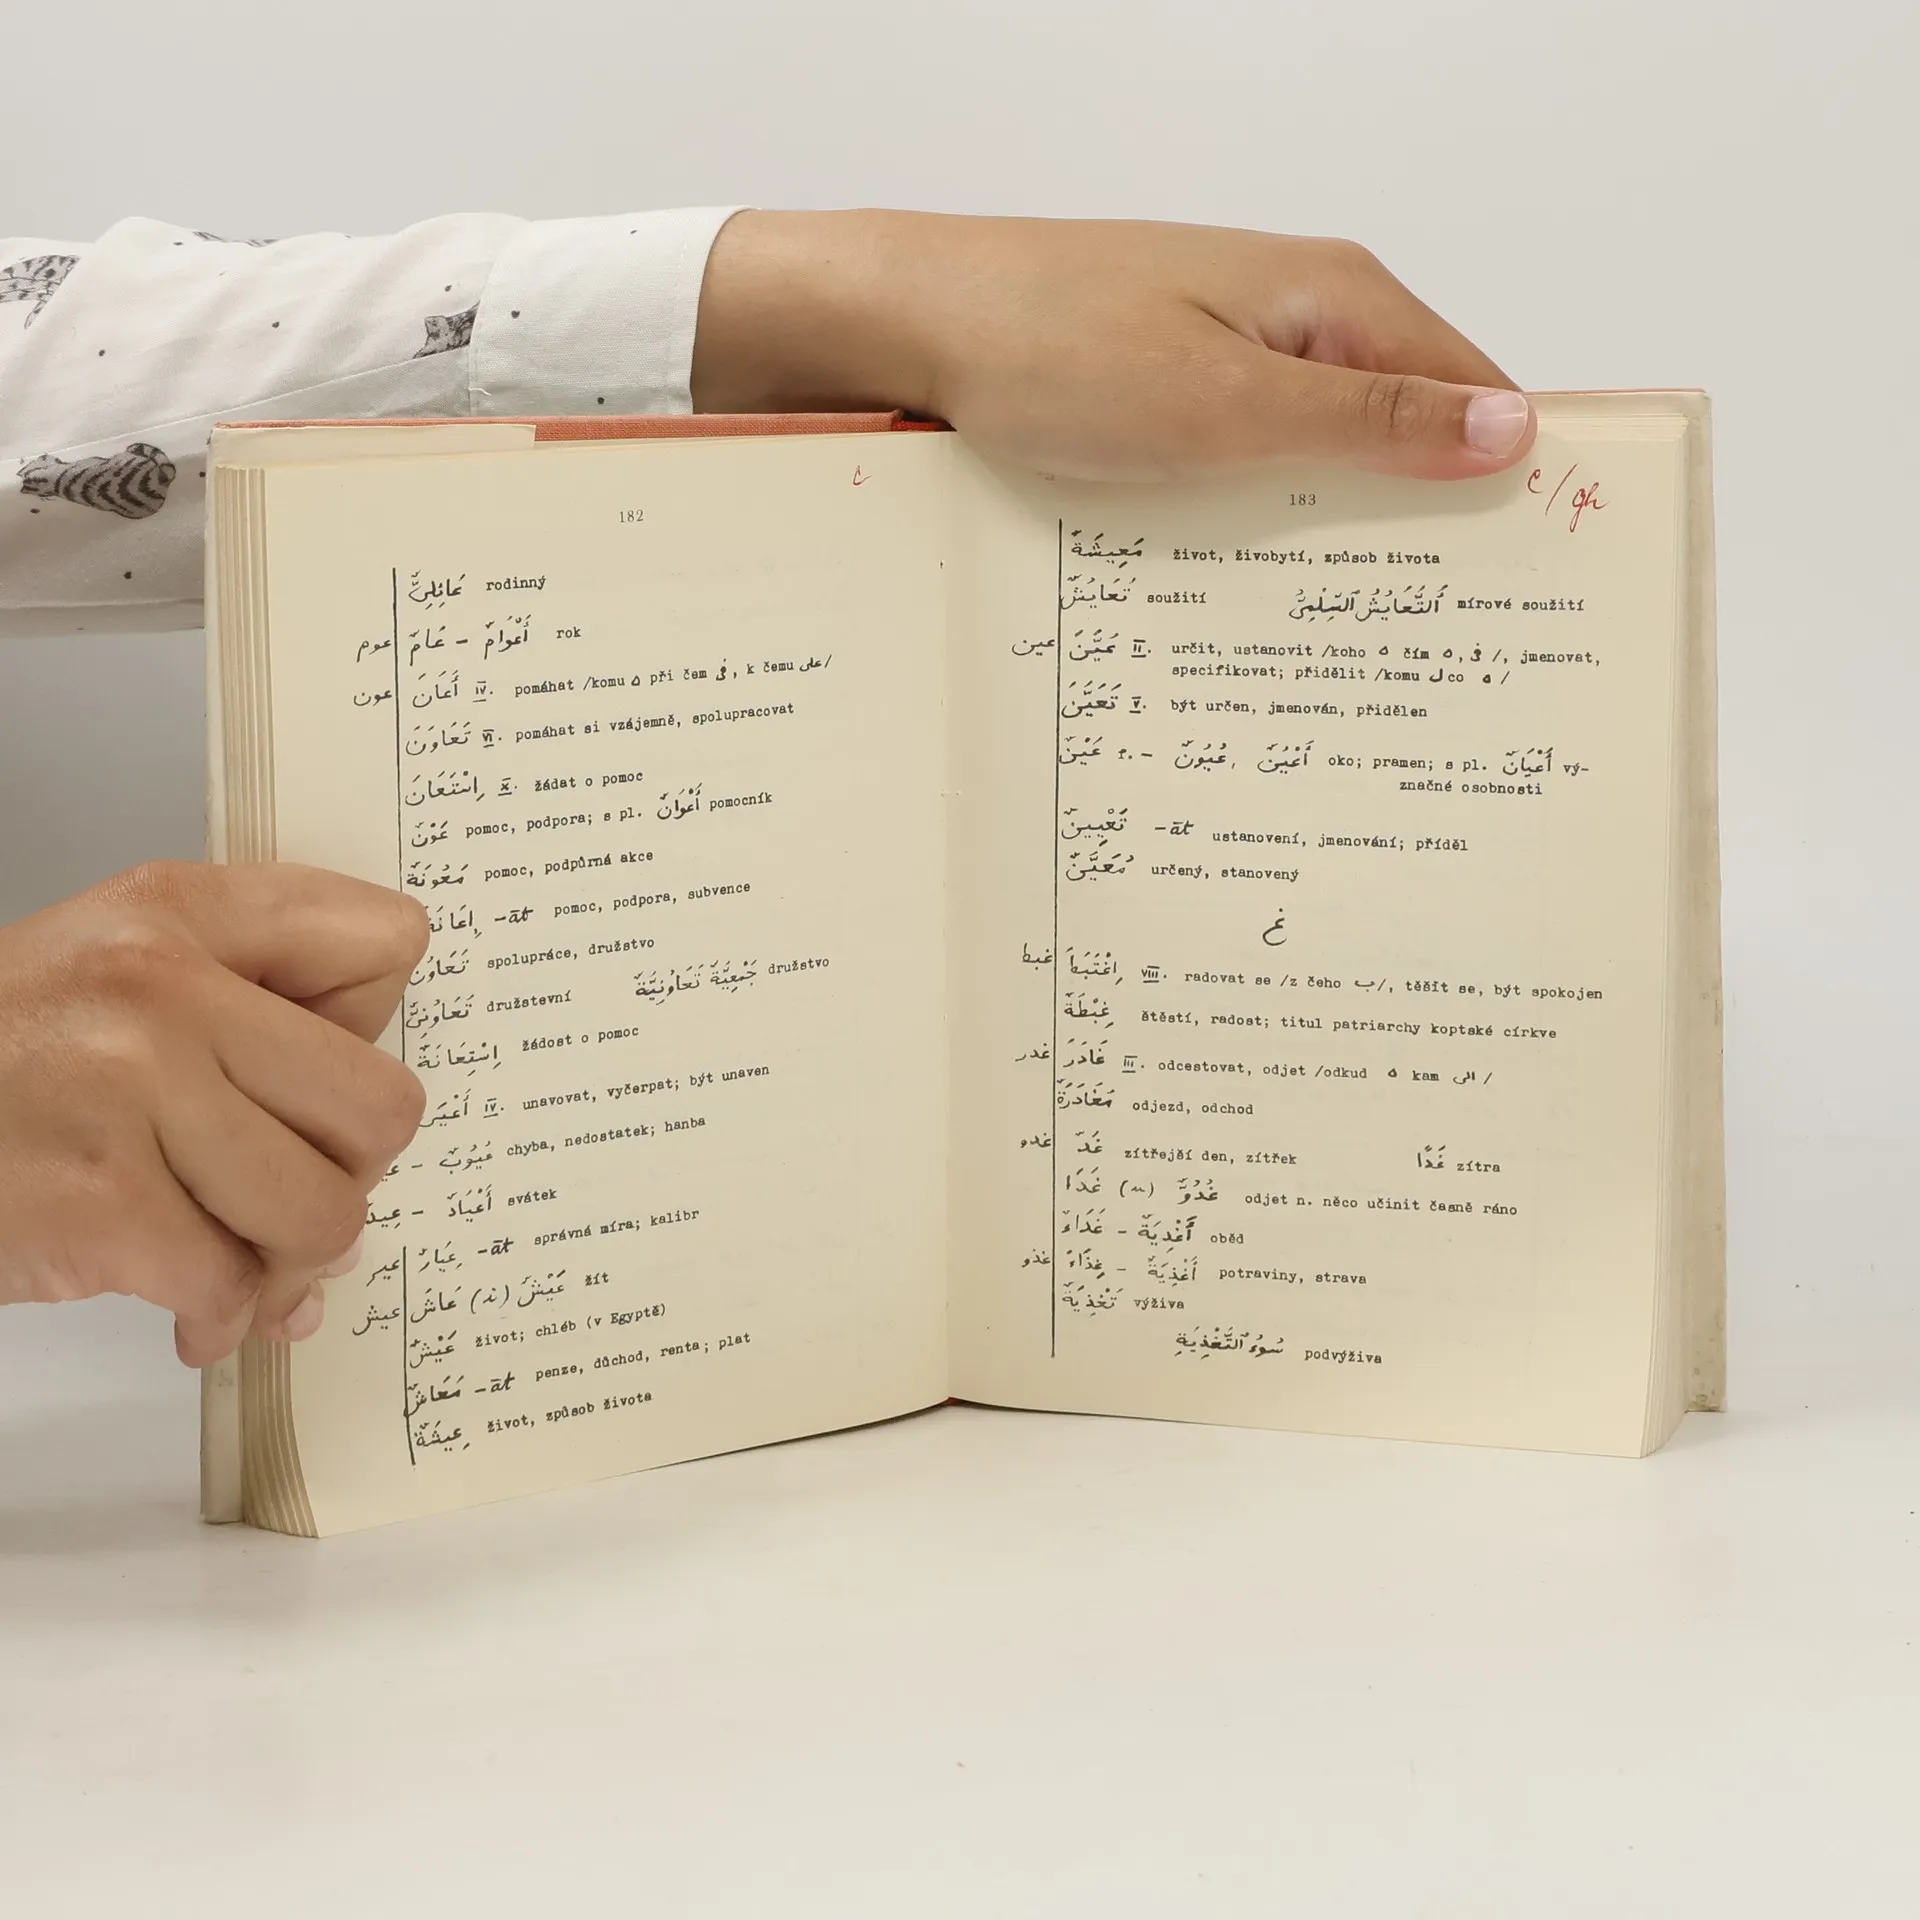 c
182
عَائِلِيٌّ rodinný
عوم عَامٌ – أَعْوَامٌ rok
عون أَعَانَ IV. pomáhat /komu ه při čem فى, k čemu على/
تَعَاوَنَ VI. pomáhat si vzájemně, spolupracovat
اِسْتَعَانَ X. žádat o pomoc
عَوْنٌ pomoc, podpora; s pl. أَعْوَانٌ pomocník
مَعُونَةٌ pomoc, podpůrná akce
إِعَانَةٌ -āt pomoc, podpora, subvence
تَعَاوُنٌ spolupráce, družstvo
تَعَاوُنِيٌّ družstevní جَمْعِيَّةٌ تَعَاوُنِيَّةٌ družstvo
اِسْتِعَانَةٌ žádost o pomoc
IV. unavovat, vyčerpat; být unaven
– عُيُوبٌ chyba, nedostatek; hanba
عِيدٌ – أَعْيَادٌ svátek
عير عِيَارٌ -āt správná míra; kalibr
عيش عَاشَ (ـِ) عَيْشٌ žít
عَيْشٌ život; chléb (v Egyptě)
مَعَاشٌ -āt penze, důchod, renta; plat
عِيشَةٌ život, způsob života
c/gh
183
مَعِيشَةٌ život, živobytí, způsob života
تَعَايُشٌ soužití اَلتَّعَايُشُ ٱلسِّلْمِيُّ mírové soužití
عين عَيَّنَ II. určit, ustanovit /koho ه čím ه, فى /, jmenovat,
specifikovat; přidělit /komu ل co ه /
تَعَيَّنَ V. být určen, jmenován, přidělen
عَيْنٌ f. – عُيُونٌ, أَعْيُنٌ oko; pramen; s pl. أَعْيَانٌ vý-
značné osobnosti
تَعْيِينٌ -āt ustanovení, jmenování; příděl
مُعَيَّنٌ určený, stanovený
غ
غبط اِغْتَبَطَ VIII. radovat se /z čeho ب/, těšit se, být spokojen
غِبْطَةٌ štěstí, radost; titul patriarchy koptské církve
غدر غَادَرَ III. odcestovat, odjet /odkud ه kam الى /
مُغَادَرَةٌ odjezd, odchod
غدو غَدٌ zítřejší den, zítřek غَدًا zítra
غَدَا (ـُ) غُدُوٌّ odjet n. něco učinit časně ráno
غَدَاءٌ – أَغْدِيَةٌ oběd
غذو غِذَاءٌ – أَغْذِيَةٌ potraviny, strava
تَغْذِيَةٌ výživa
سُوءُ ٱلتَّغْذِيَةِ podvýživa